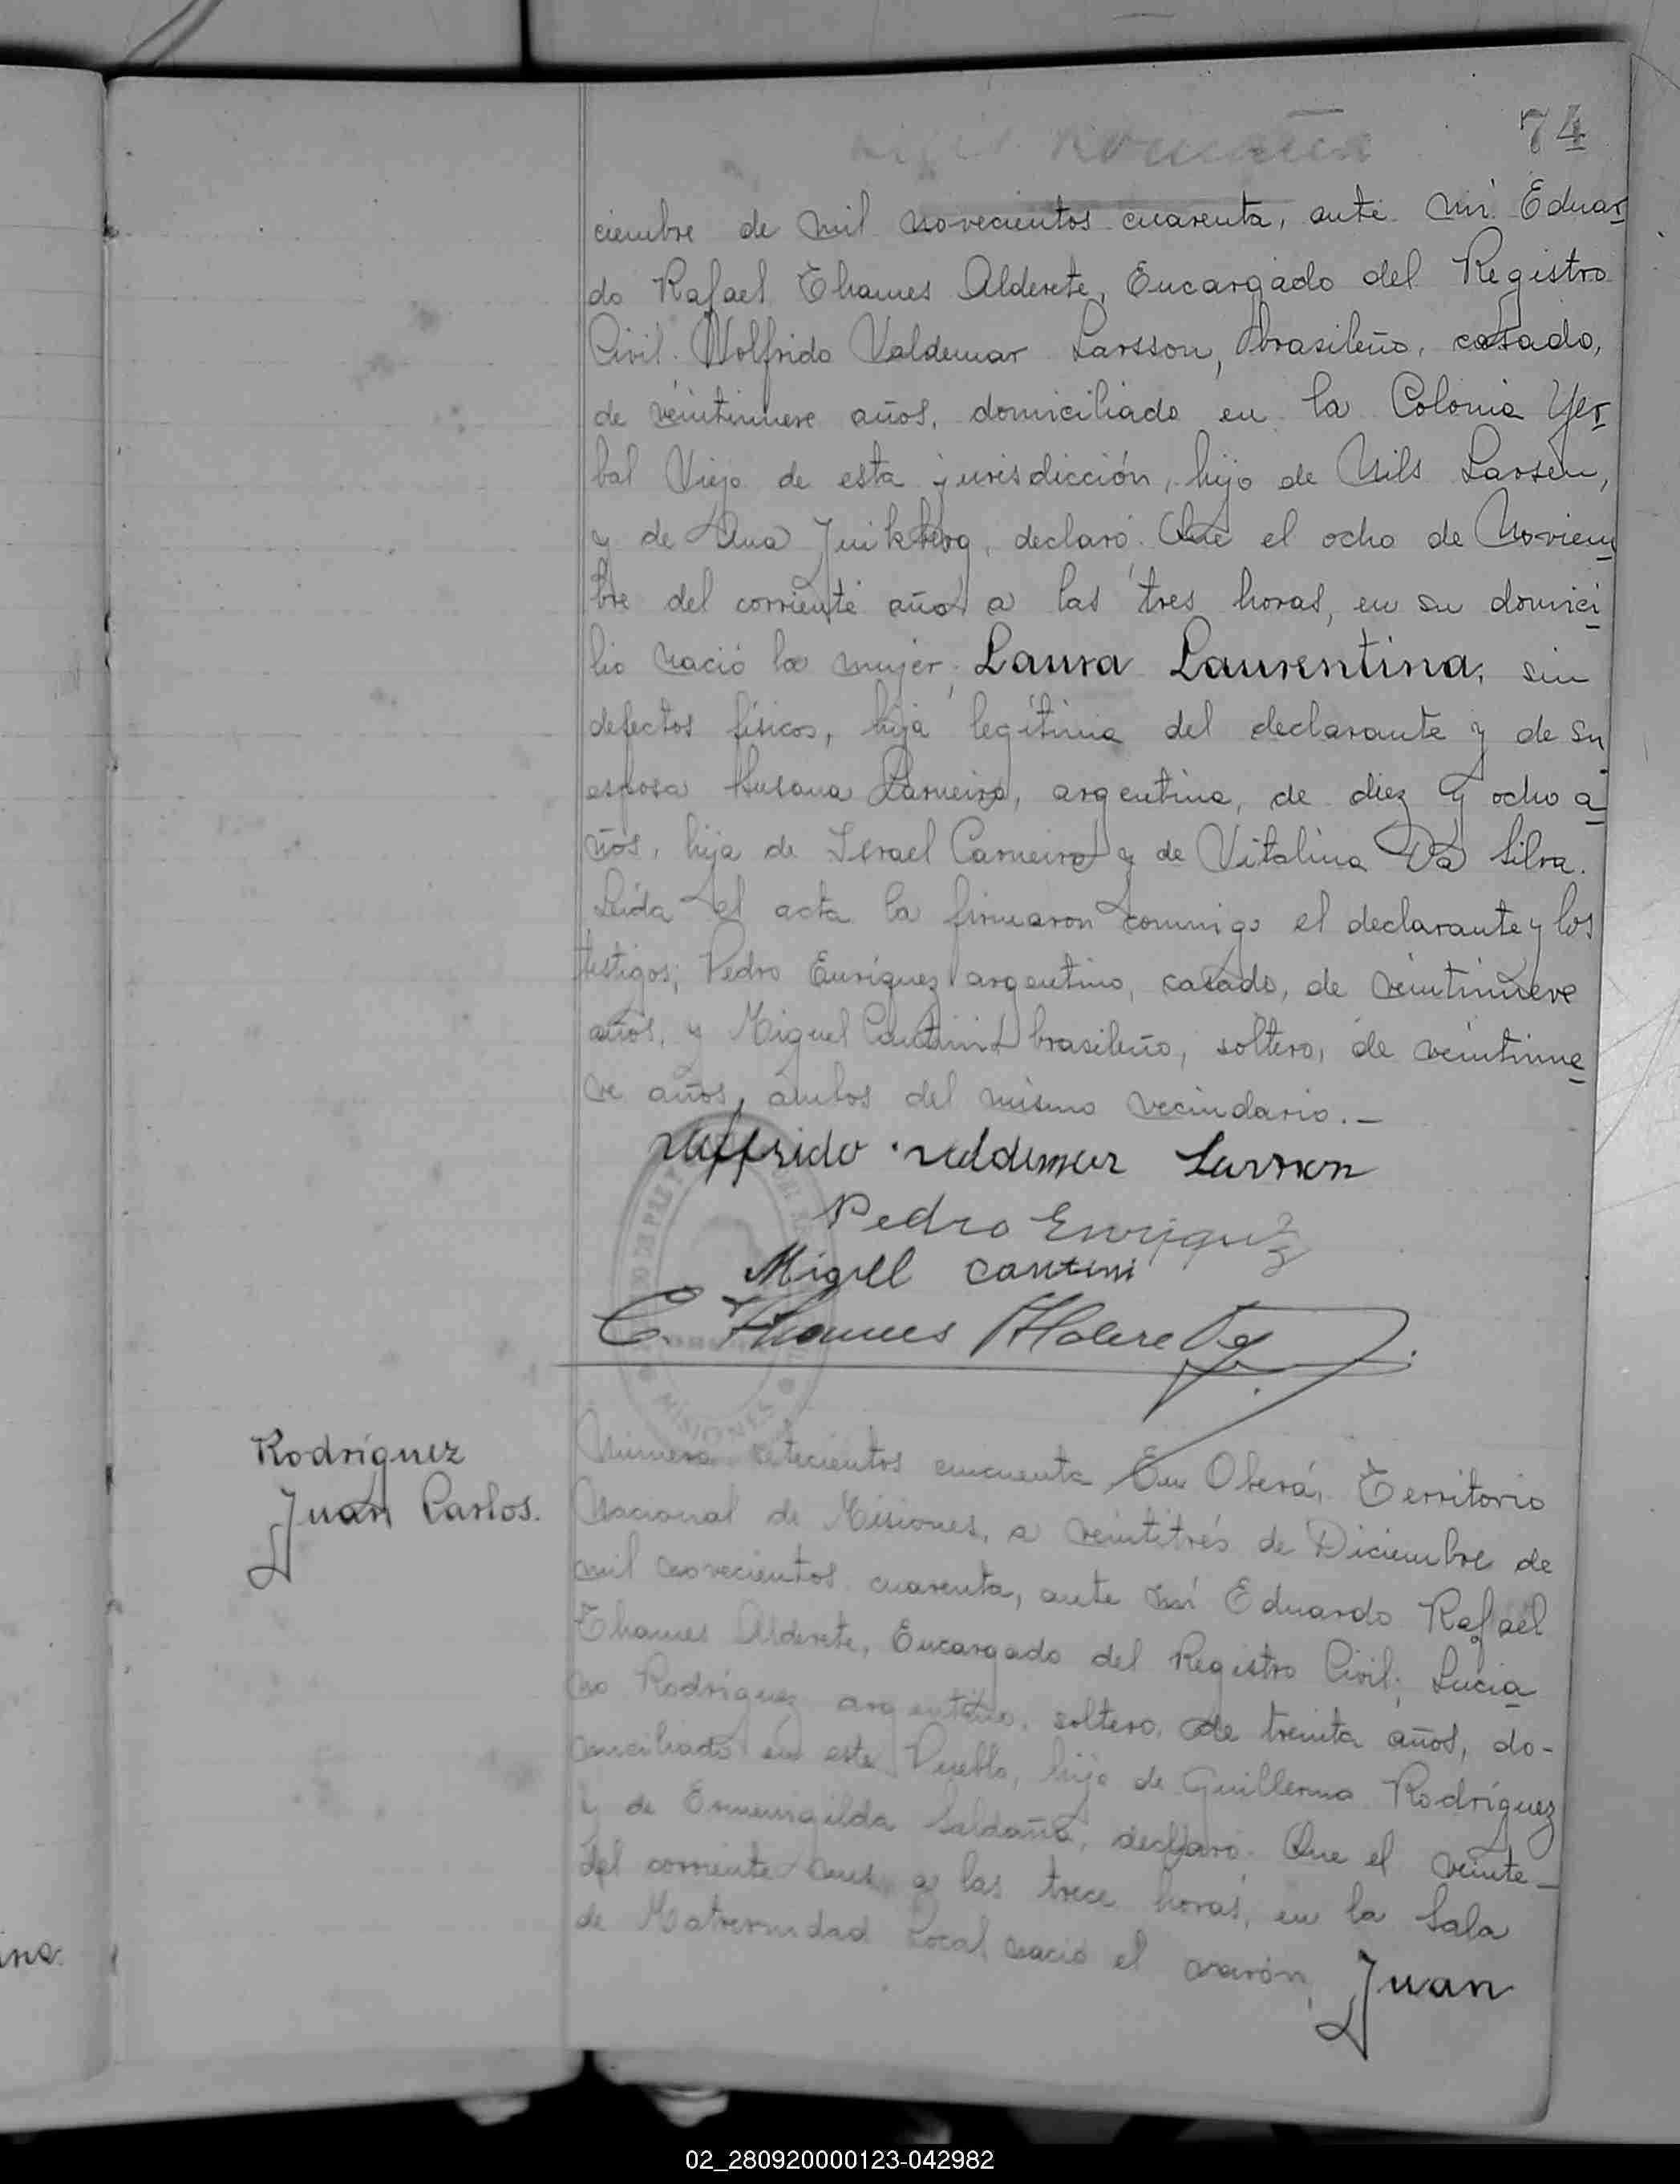 74
ciembre de mil novecientos cuarenta, ante mí Eduar
do Rafael Thames Alderete, Encargado del Registro
Civil. Wolfrido Valdemar Larsson, brasileño, casado,
de veintinueve años, domiciliado en la Colonia Yer
bal Viejo de esta jurisdicción, hijo de Nils Larsen,
y de Ana declaró: Que el ocho de Noviem
bre del corriente año a las tres horas, en su domici
lio nació la mujer, Laura Laurentina, sin
defectos físicos, hija legítima del declarante y de su
esposa Susana Carneiro, argentina, de diez y ocho a
ños, hija de Israel Carneiro y de Vitalina Da Silva.
Leída el acta la firmaron conmigo el declarante y los
testigos; Pedro Enríquez argentino, casado, de veintinueve
años, y Miguel Cantini brasileño, soltero, de veintinue
ve años, ambos del mismo vecindario.—
Wolfrido Valdemar Larsson
Pedro Enriquez
Migell Cantini
E. Thames Alderete
MISIONES
Rodríguez
Juan Carlos.
Número setecientos cincuenta En Oberá, Territorio
Nacional de Misiones, a veintitrés de Diciembre de
mil novecientos cuarenta, ante mí Eduardo Rafael
Thames Alderete, Encargado del Registro Civil; Lucia
no Rodríguez argentino, soltero, de treinta años, do-
miciliado en este Pueblo, hijo de Guillermo Rodríguez
y de Ermenegilda Saldaña, declaró: Que el veinte—
del corriente mes a las trece horas, en la Sala
de Maternidad Local nació el varón, Juan
ina.
02_280920000123-042982